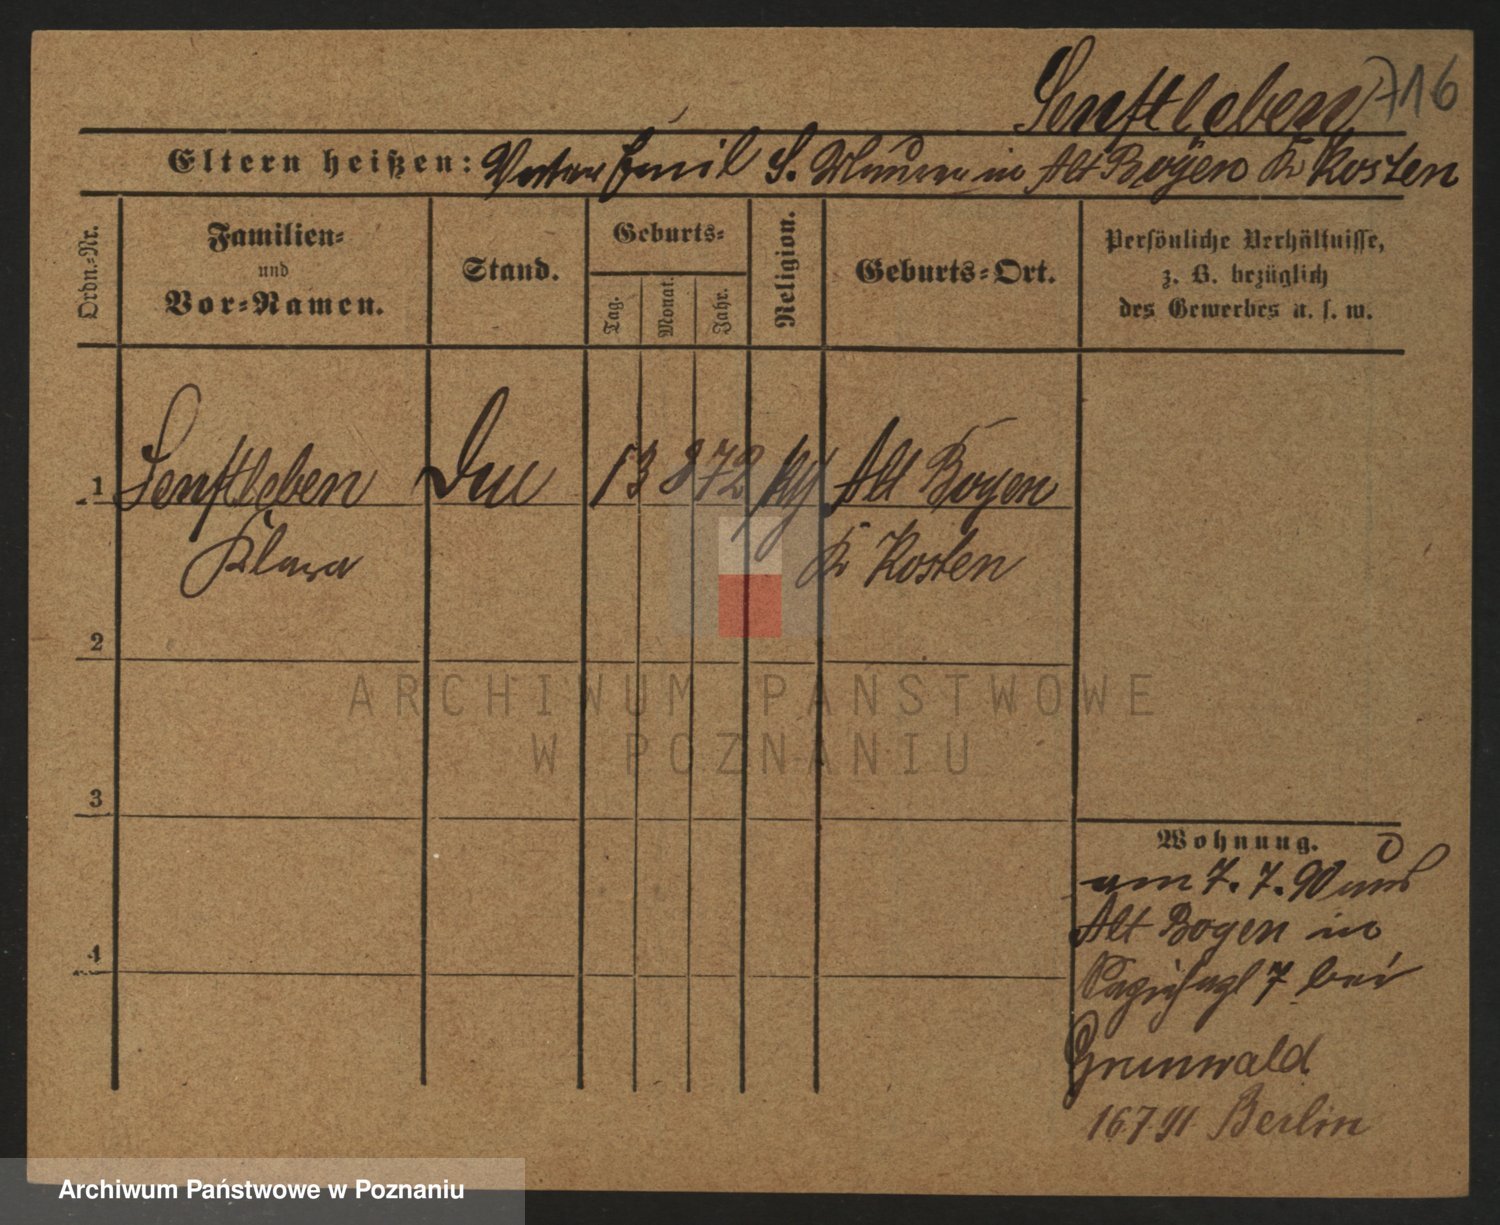 Senftleben 716
Eltern heißen: Vater Emil S. Maurer in Alt Boyen Kr Kosten
Ordn.-Nr.
Familien-
und
Vor-Namen.
Stand.
Geburts-
Tag.
Monat.
Jahr.
Religion.
Geburts-Ort.
Persönliche Verhältnisse,
z. B. bezüglich
des Gewerbes u. s. w.
1 Senftleben 13 8 72 Alt Boyen
Klara Kr Kosten
2
3
4
Wohnung.
am 7. 7. 90 aus
Alt Boyen in
7 bei
Grunwald
16 7 91 Berlin
ARCHIWUM PAŃSTWOWE
W POZNANIU
Archiwum Państwowe w Poznaniu